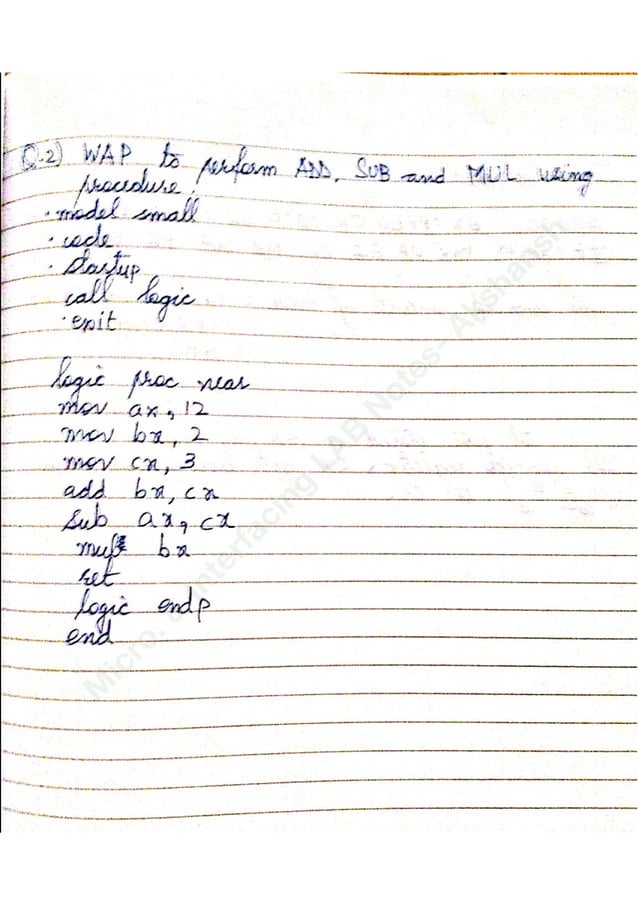 Q.2) WAP to perform ADD, SUB and MUL using
procedure.
.model small
.code
.startup
call logic
.exit
logic proc near
mov ax, 12
mov bx, 2
mov cx, 3
add bx, cx
sub ax, cx
mul bx
ret
logic endp
end
Micro. & Interfacing LAB Notes- Akshansh